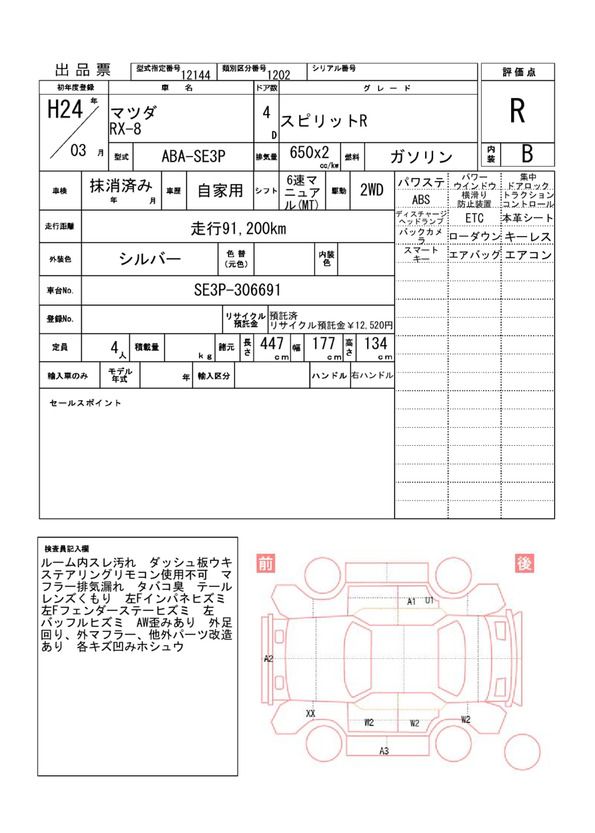 出品票 型式指定番号 12144 類別区分番号 1202 シリアル番号 評価点
初年度登録 車名 ドア数 グレード
H24年 03月 マツダ RX-8 4D スピリットR R
型式 ABA-SE3P 排気量 650x2 cc/kw 燃料 ガソリン 内装 B
車検 抹消済み 年 月 車歴 自家用 シフト 6速マニュアル(MT) 駆動 2WD
パワステ パワーウインドウ 集中ドアロック
ABS 横滑り防止装置 トラクションコントロール
走行距離 走行91,200km
ディスチャージヘッドランプ ETC 本革シート
バックカメラ ローダウン キーレス
外装色 シルバー 色替(元色) 内装色
スマートキー エアバッグ エアコン
車台No. SE3P-306691
登録No. リサイクル預託金 預託済
リサイクル預託金￥12,520円
定員 4人 積載量 kg 諸元 長さ 447cm 幅 177cm 高さ 134cm
輸入車のみ モデル年式 年 輸入区分 ハンドル 右ハンドル
セールスポイント
検査員記入欄
ルーム内スレ汚れ　ダッシュ板ウキ
ステアリングリモコン使用不可　マ
フラー排気漏れ　タバコ臭　テール
レンズくもり　左Fインパネヒズミ
左Fフェンダーステーヒズミ　左
バッフルヒズミ　AW歪みあり　外足
回り、外マフラー、他外パーツ改造
あり　各キズ凹みホシュウ
前 後
A1 U1
A2
XX W2 W2 W2
A3